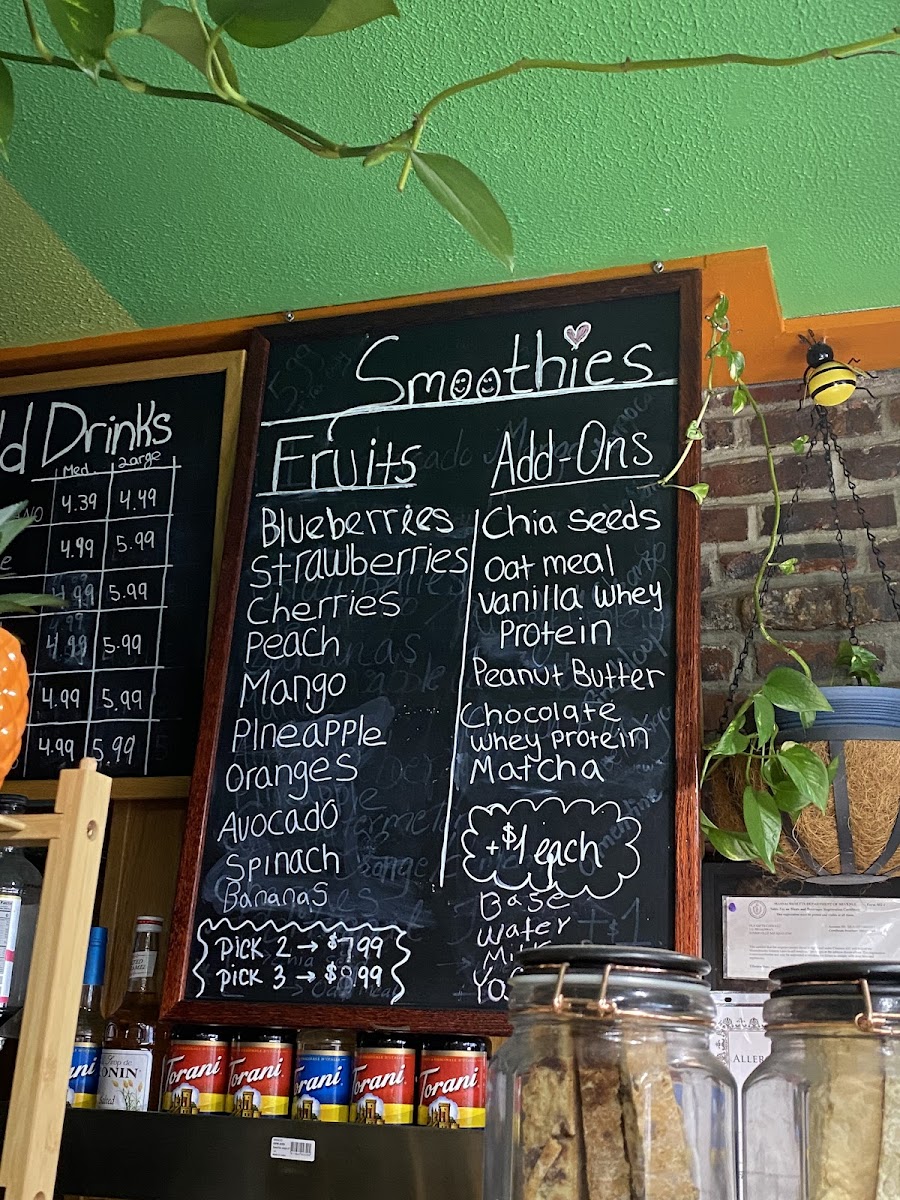 Smoothies
Fruits
Blueberries
Strawberries
Cherries
Peach
Mango
Pineapple
Oranges
Avocado
Spinach
Bananas
Pick 2 → $7.99
Pick 3 → $8.99
Add-Ons
Chia seeds
Oatmeal
Vanilla Whey
Protein
Peanut Butter
Chocolate
Whey Protein
Matcha
+$1 each
Base
Water
Drinks
Med Large
4.39 4.49
4.99 5.99
4.99 5.99
4.99 5.99
4.99 5.99
4.99 5.99
Torani
Torani
Torani
Torani
Torani